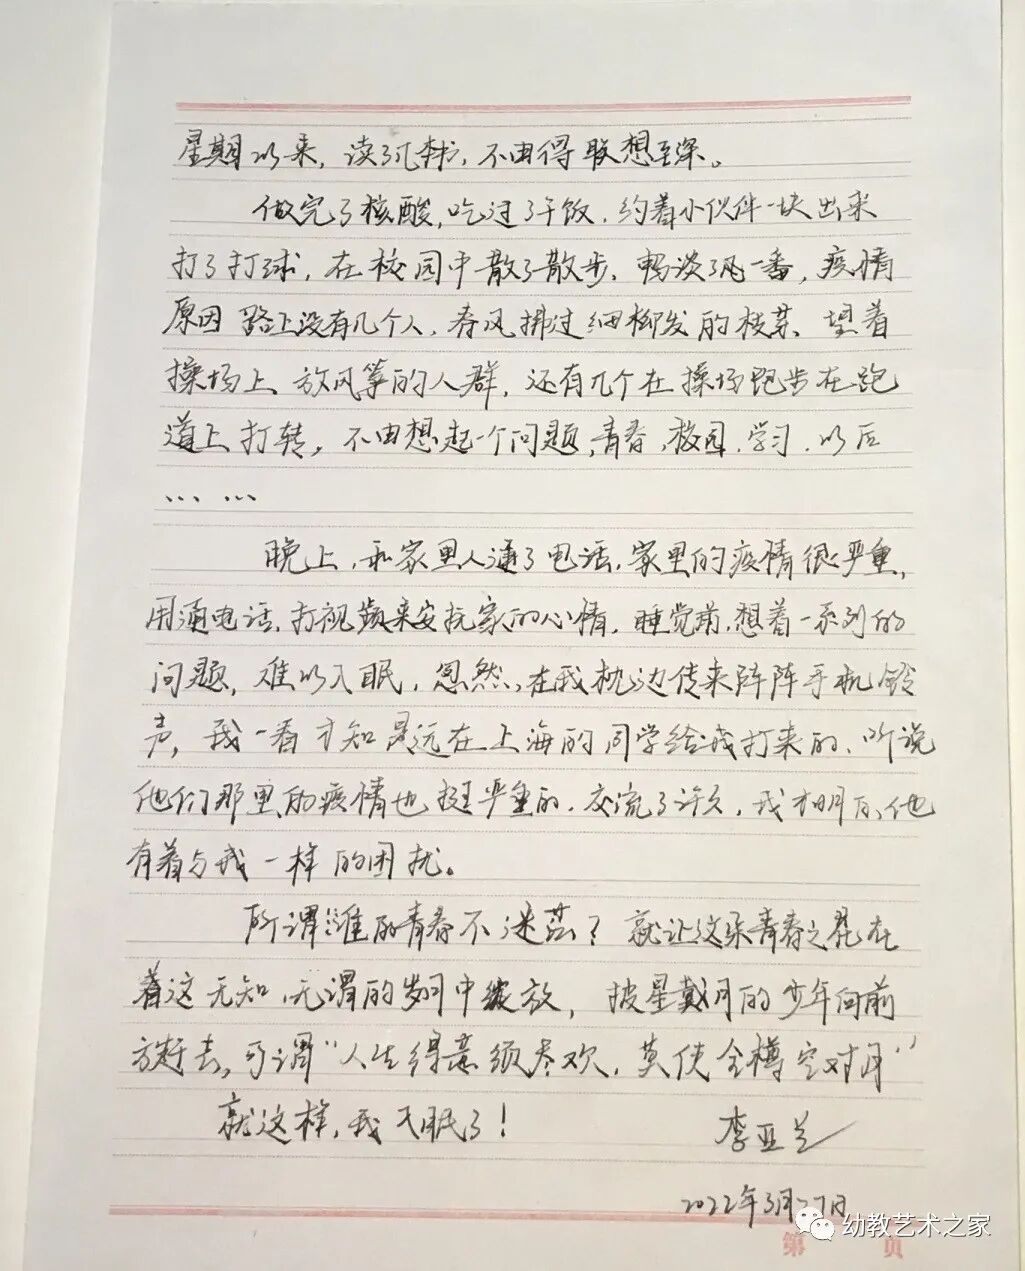 星期以来，读了几本书，不由得联想至深。
做完了核酸，吃过了午饭，约着小伙伴一块出来
打了打球，在校园中散了散步，畅谈了风一番，疫情
原因 路上没有几个人，春风拂过细柳发的枝芽，望着
操场上 放风筝的人群，还有几个在操场跑步在跑
道上打转，不由想起一个问题，青春，校园，学习，以后
… …
晚上，和家里人通了电话，家里的疫情很严重，
用通电话，打视频来安抚家的心情，睡觉前，想着一系列的
问题，难以入眠，忽然，在我枕边传来阵阵手机铃
声，我一看才知是远在上海的同学给我打来的，听说
他们那里的疫情也挺严重的，交流了许久，我才明白，他
有着与我一样的困扰。
所谓谁的青春不迷茫？就让这朵青春之花在
着这无知，无谓的岁月中绽放，披星戴月的少年向前
方赶去，可谓“人生得意须尽欢，莫使金樽空对月”
就这样，我入眠了！ 李亚兰
2022年3月27日
第 页
幼教艺术之家